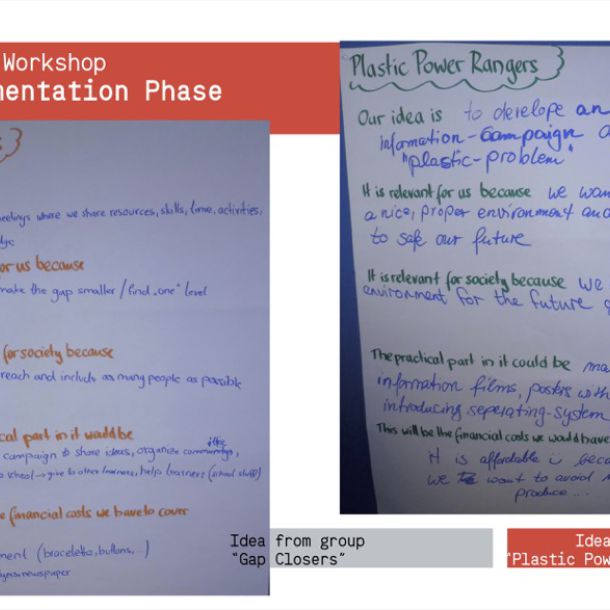 Workshop
mentation Phase
eetings where we share resources, skills, time, activities,
or us because
make the gap smaller / find „one" level
for society because
reach and include as many people as possible
cal part in it would be
campaign to share ideas, organize
school → give to other learners, help learners (school stuff)
e financial costs we have to cover
ment (bracelets, buttons, ...)
newspaper
Idea from group
"Gap Closers"
Plastic Power Rangers
Our idea is to develope an
information-campaign
"plastic-problem"
It is relevant for us because we wan
a nice, proper environment and
to safe our future
It is relevant for society because we
environment for the future
The practical part in it could be ma
information films, posters with
introducing seperating-system
This will be the financial costs we would have
it is affordable :) beca
we want to avoid
produce ...
Idea
"Plastic Pow